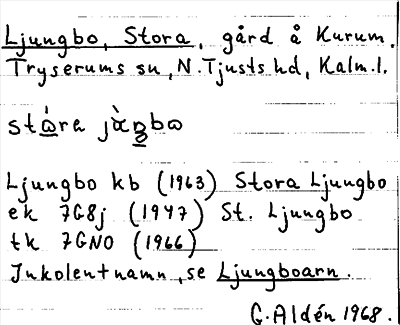 Ljungbo, Stora, gård å Kurum.
Tryserums sn, N. Tjusts hd, Kalm.l.
stɷ̀ra jàŋbɷ
Ljungbo kb (1963) Stora Ljungbo
ek 7G8j (1947) St. Ljungbo
tk 7GNO (1966)
Inkolentnamn, se Ljungboarn.
G. Aldén 1968.